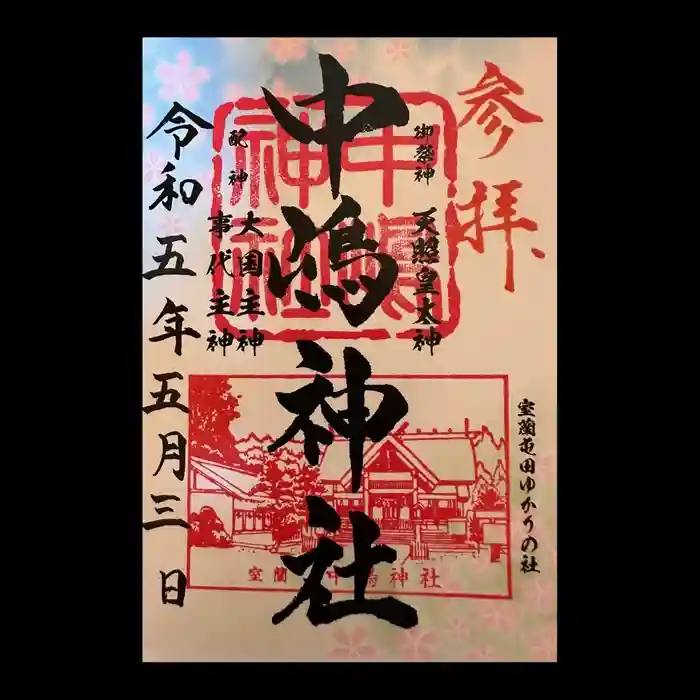 参拝
室蘭屯田ゆかりの社
御祭神
天照皇大神
中嶋神社
配神
大国主神
事代主神
令和五年五月三日
中嶋神社
室蘭 中嶋神社